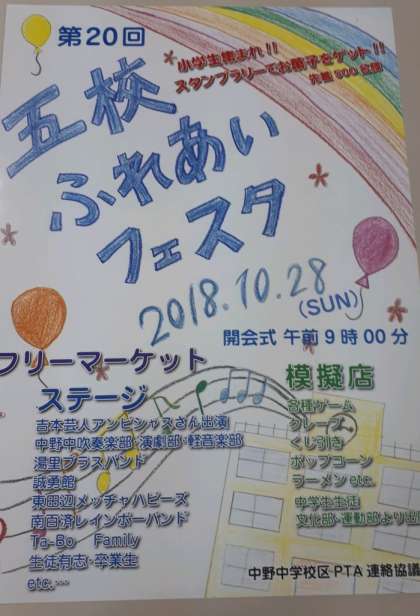 第20回
小学生集まれ!!
スタンプラリーでお菓子をゲット!!
先着500名様
五校
ふれあい
フェスタ
2018.10.28
(SUN)
開会式 午前9時00分
フリーマーケット
ステージ
吉本芸人アンビシャスさん出演
中野中吹奏楽部・演劇部・軽音楽部
湯里ブラスバンド
誠勇館
東田辺メッチャハピーズ
南百済レインボーバンド
Ta-Bo Family
生徒有志・卒業生
etc.…
模擬店
各種ゲーム
クレープ
くじ引き
ポップコーン
ラーメン etc.
中学生生徒
文化部・運動部より出
中野中学校区PTA連絡協議